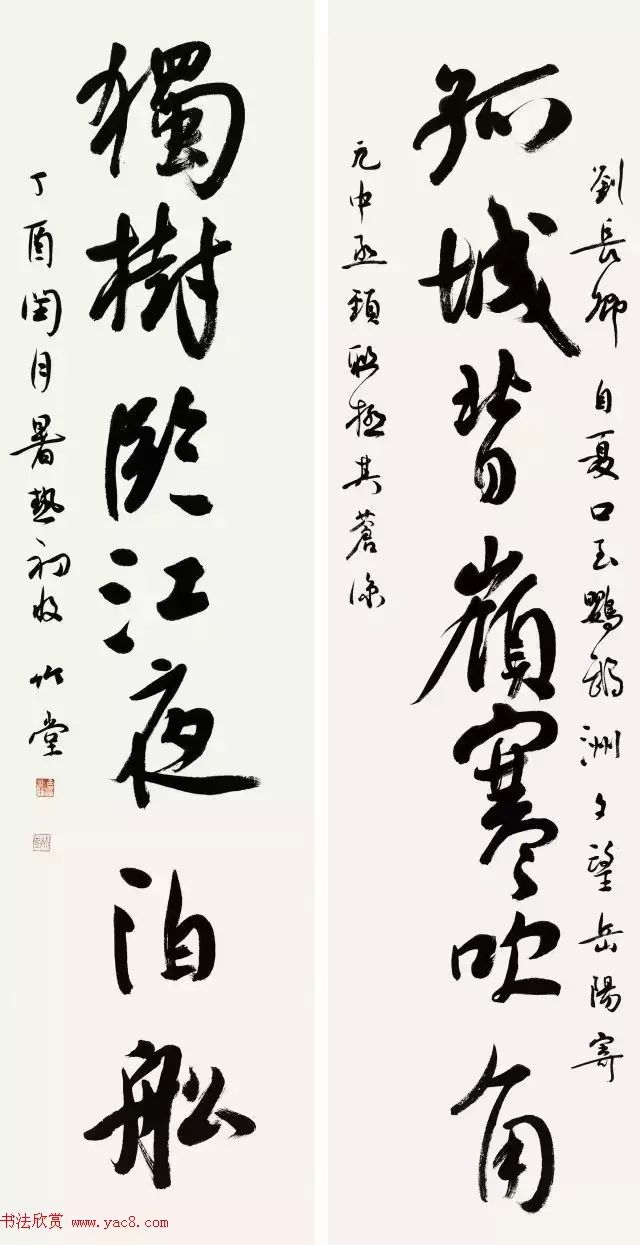 劉長卿自夏口至鸚鵡洲夕望岳陽寄
孤城背嶺寒吹角
元中丞頸聯極其蒼涼
獨樹臨江夜泊舩
丁酉閏月暑熱初收 竹堂
书法欣赏 www.yac8.com